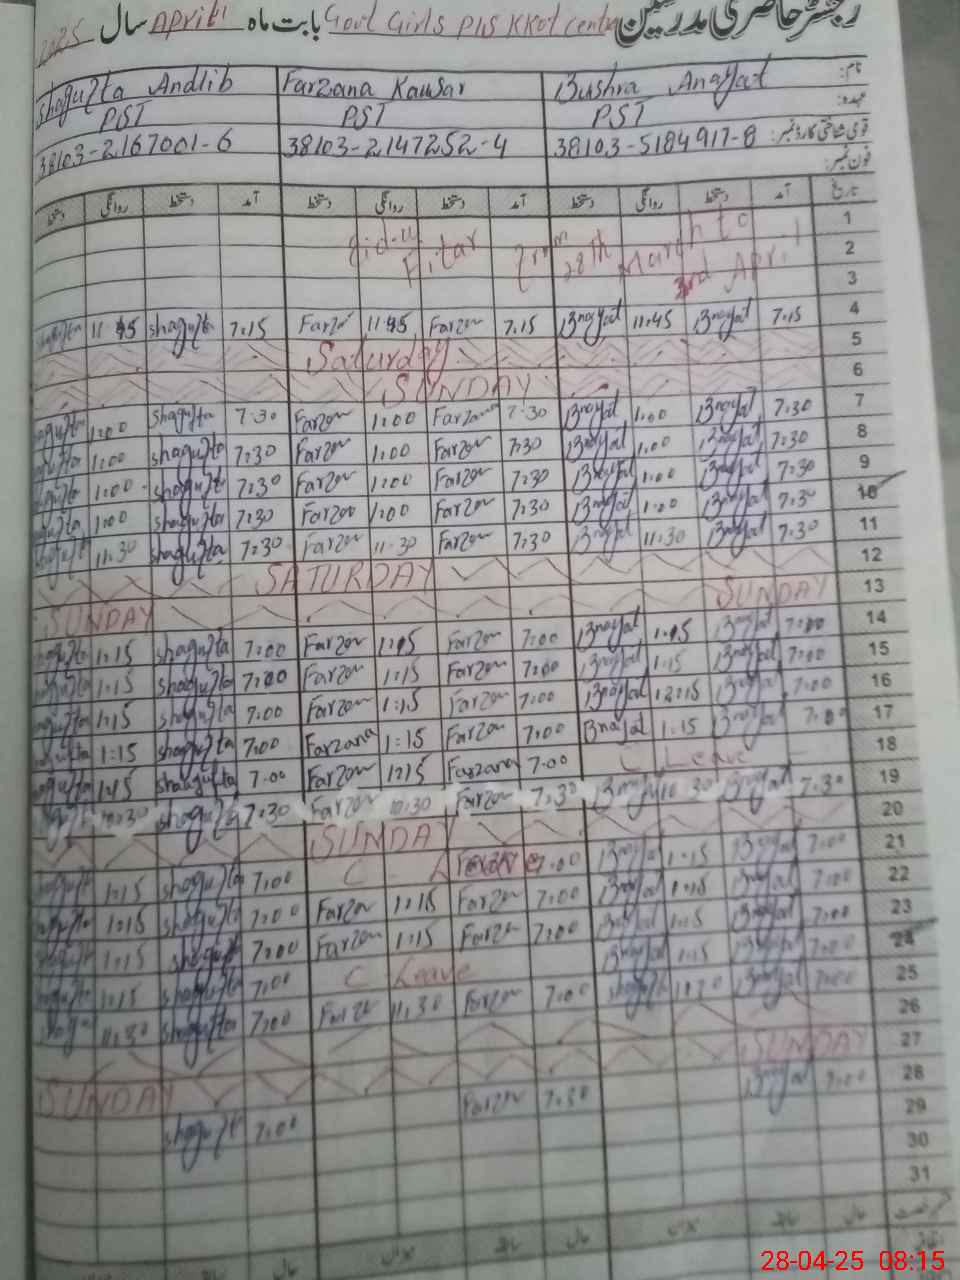 رجسٹر حاضری مدرسین Govt Girls P/S KKot Center بابت ماہ April سال 2025
نام: Bushra Anayat Farzana Kausar Shagufta Andlib
عہدہ: PST PST PST
قومی شناختی کارڈ نمبر: 38103-5184917-8 38103-2147252-4 38103-2167001-6
فون نمبر:
تاریخ آمد دستخط روانگی دستخط آمد دستخط روانگی دستخط آمد دستخط روانگی دستخط
1
2 Eid-u Fitar from 28th March to
3 3rd April
4 7.15 Bnayat 11.45 Bnayat 7.15 Farzan 11.45 Farzan 7.15 shagufta 11.45 shagufta
5 Saturday
6 SUNDAY
7 7.30 Bnayat 1.00 Bnayat 7.30 Farzana 1:00 Farzan 7.30 shagufta 1:00 shagufta
8 7:30 Bnayat 1:00 Bnayat 7:30 Farzan 1:00 Farzan 7:30 shagufta 1:00 shagufta
9 7:30 Bnayat 1:00 Bnayat 7:30 Farzan 1:00 Farzan 7:30 shagufta 1:00 shagufta
10 7:30 Bnayat 1:00 Bnayat 7:30 Farzan 1:00 Farzan 7:30 shagufta 1:00 shagufta
11 7:30 Bnayat 11.30 Bnayat 7:30 Farzan 11.30 Farzan 7:30 shagufta 11.30 shagufta
12 SATURDAY
13 SUNDAY SUNDAY
14 7:00 Bnayat 1:15 Bnayat 7:00 Farzan 1:15 Farzan 7:00 shagufta 1:15 shagufta
15 7:00 Bnayat 1:15 Bnayat 7:00 Farzan 1:15 Farzan 7:00 shagufta 1:15 shagufta
16 7:00 Bnayat 12:15 Bnayat 7:00 Farzan 1:15 Farzan 7:00 shagufta 1:15 shagufta
17 7:00 Bnayat 1:15 Bnayat 7:00 Farzan 1:15 Farzana 7:00 shagufta 1:15 shagufta
18 C Leave 7:00 Farzana 1:15 Farzan 7:00 shagufta shagufta
19 7:30 Bnayat 10:30 Bnayat 7:30 Farzan 10:30 Farzan 7:30 shagufta 10:30
20 SUNDAY
21 7:00 Bnayat 1:15 Bnayat 7:00 C Leave 7:00 shagufta 1:15 shagufta
22 7:00 Bnayat 1:15 Bnayat 7:00 Farzan 1:15 Farzan 7:00 shagufta 1:15 shagufta
23 7:00 Bnayat 1:15 Bnayat 7:00 Farzan 1:15 Farzan 7:00 shagufta 1:15 shagufta
24 7:00 Bnayat 1:15 Bnayat C Leave 7:00 shagufta 1:15 shagufta
25 7:00 Bnayat 7:00 Farzan 11.30 Farzan 7:00 shagufta 11.30
26
27 SUNDAY SUNDAY
28 7:00 Bnayat 7:30 Farzan 7:00 shagufta
29
30
31
28-04-25 08:15